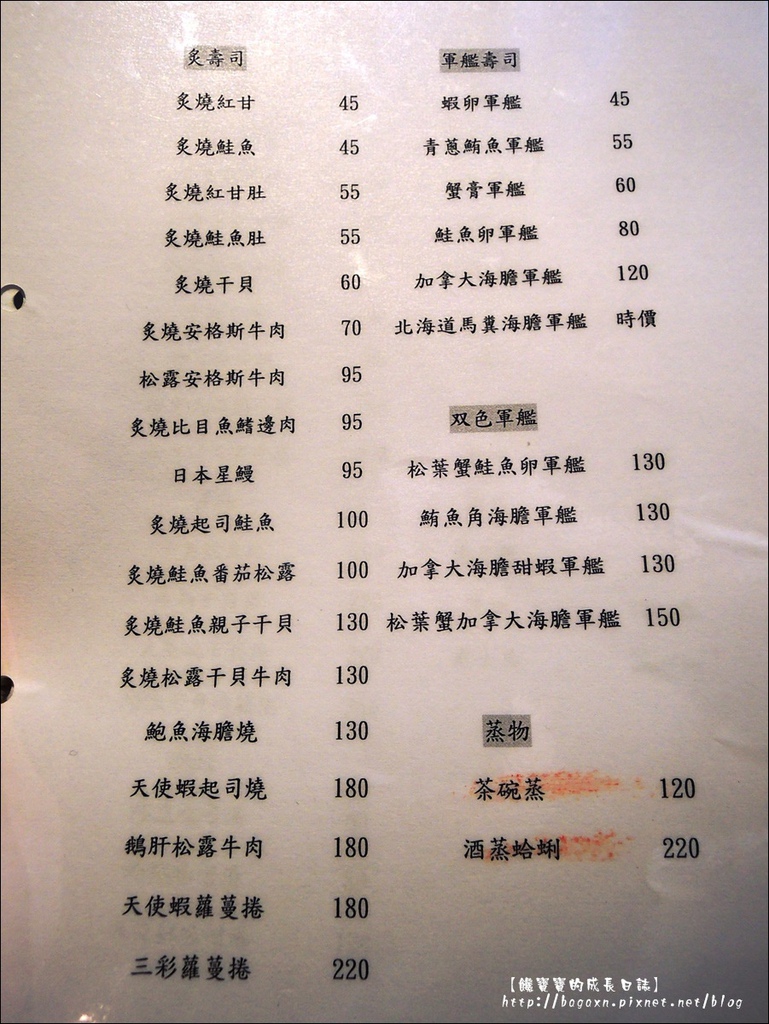 炙壽司
炙燒紅甘 45
炙燒鮭魚 45
炙燒紅甘肚 55
炙燒鮭魚肚 55
炙燒干貝 60
炙燒安格斯牛肉 70
松露安格斯牛肉 95
炙燒比目魚鰭邊肉 95
日本星鰻 95
炙燒起司鮭魚 100
炙燒鮭魚番茄松露 100
炙燒鮭魚親子干貝 130
炙燒松露干貝牛肉 130
鮑魚海膽燒 130
天使蝦起司燒 180
鵝肝松露牛肉 180
天使蝦蘿蔓捲 180
三彩蘿蔓捲 220
軍艦壽司
蝦卵軍艦 45
青蔥鮪魚軍艦 55
蟹膏軍艦 60
鮭魚卵軍艦 80
加拿大海膽軍艦 120
北海道馬糞海膽軍艦 時價
双色軍艦
松葉蟹鮭魚卵軍艦 130
鮪魚角海膽軍艦 130
加拿大海膽甜蝦軍艦 130
松葉蟹加拿大海膽軍艦 150
蒸物
茶碗蒸 120
酒蒸蛤蜊 220
【饞寶寶的成長日誌】
http://bogoxn.pixnet.net/blog